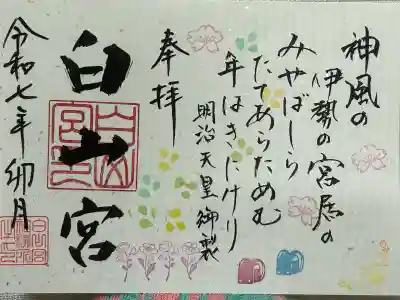 神風の
伊勢の宮居の
みやばしら
たてあらためむ
年はきにけり
明治天皇御製
奉拝
白山宮
令和七年卯月